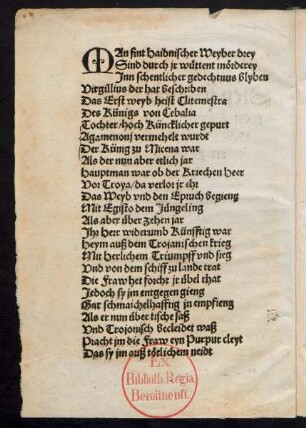 MAn fint haidnischer Weyber drey
Sind durch jr wüttent mörderey
Inn schentlicher gedechtnus blyben
Virgillius der hat beschriben
Das Erst weyb heist Clitemestra
Des Künigs von Cebalia
Tochter / hoch Küncklicher gepurt
Agamenonj vermehelt wurdt
Der Künig zu Micena war
Als der nun aber etlich jar
Hauptman war ob der Kriechen heer
Vor Troya / da verlor jr ehr
Das Weyb vnd den Epruch begieng
Mit Egisto dem Jüngeling
Als aber über zehen jar
Ihr herr widerumb Künfftig war
heym auß dem Troianischen krieg
Mit herlichem Triumpff vnd sieg
Vnd von dem schiff zu lande trat
Die Fraw het forcht jr übel that
Jedoch sy jm entgegen gieng
Gar schmaichelhafftig jn empfieng
Als er nun über tische saß
Vnd Trojonisch Becleidet waß
Pracht jm die Fraw eyn Purpur cleyt
Das sy jm auß tötlichem neidt
EX
Biblioth. Regia
Berolinensi.